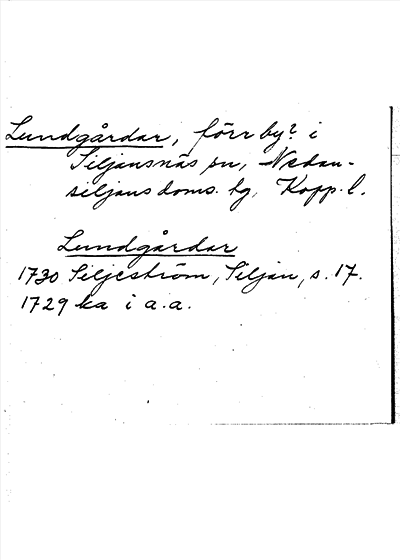 Lundgårdar, förr by? i
Siljansnäs sn, Nedan-
siljans doms. hg, Kopp. l.
Lundgårdar
1730 Siljeström, Siljan, s. 17.
1729 ka i a.a.